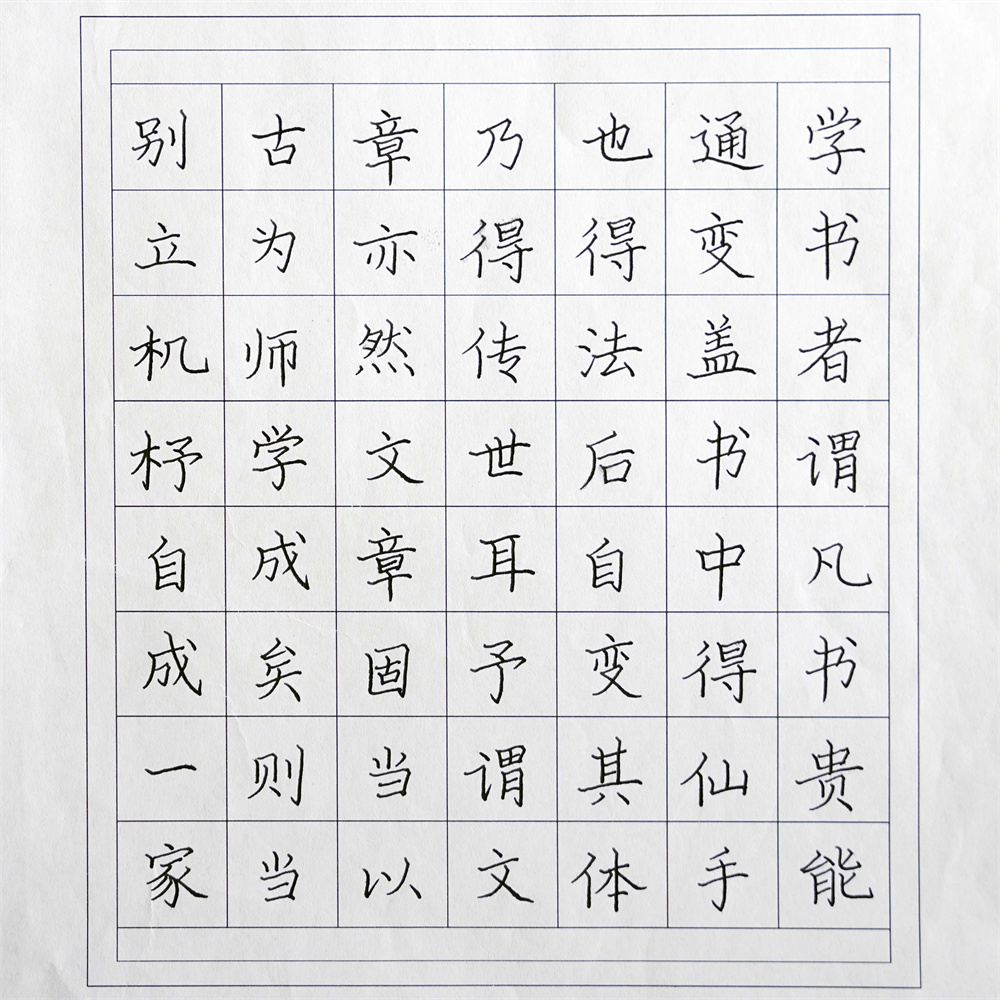 学书者谓凡书贵能
通变盖书中得仙手
也得法后自变其体
乃得传世耳予谓文
章亦然文章固当以
古为师学成矣则当
别立机杼自成一家